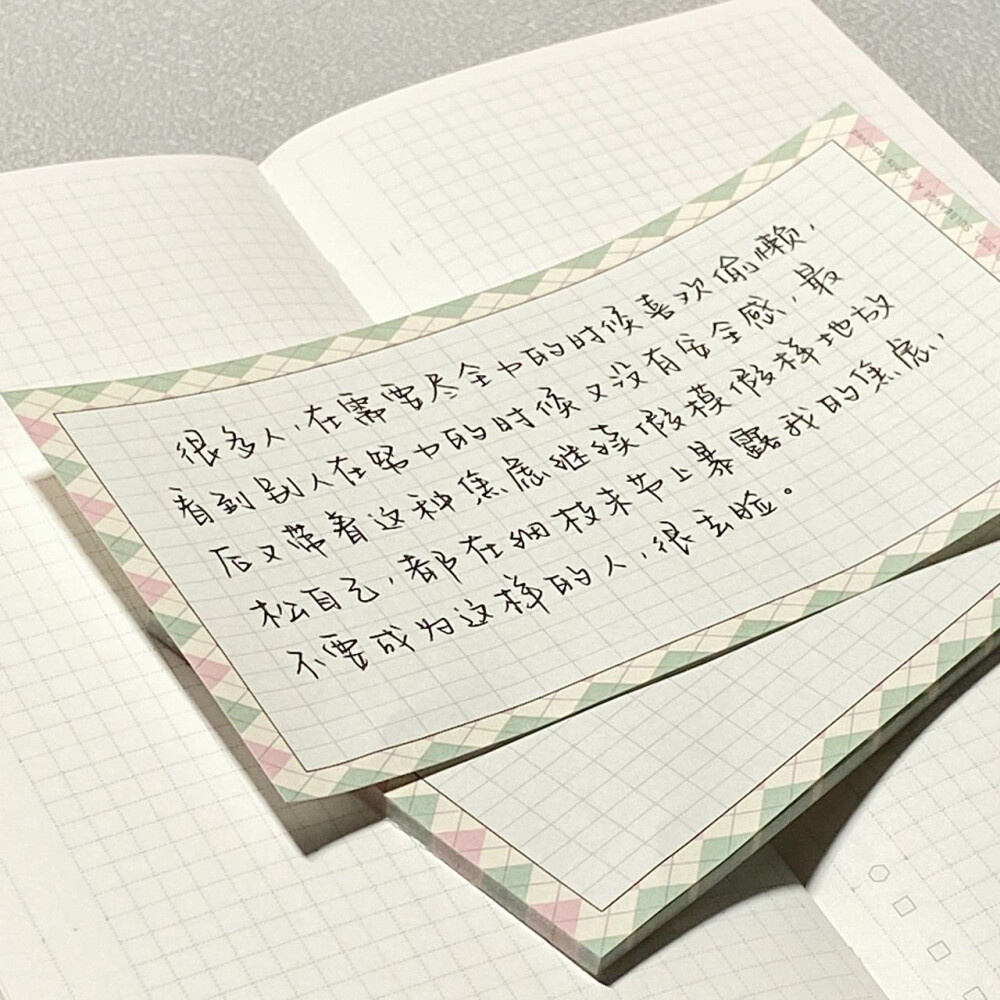 很多人,在需要尽全力的时候喜欢偷懒,
看到别人在努力的时候又没有安全感,最
后又带着这种焦虑继续假模假样地放
松自己,都在细枝末节上暴露我的焦虑,
不要成为这样的人,很丢脸。
SULLBANGE All rights reserved